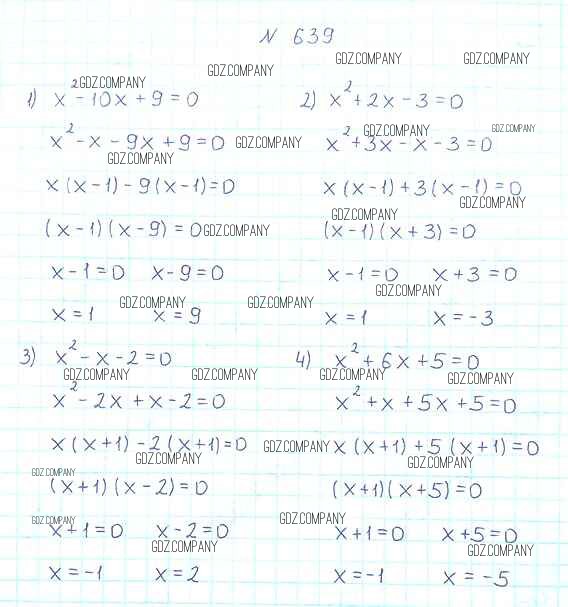 N 639
GDZ.COMPANY GDZ.COMPANY
GDZ.COMPANY GDZ.COMPANY
1) x² - 10x + 9 = 0
2) x² + 2x - 3 = 0
x² - x - 9x + 9 = 0 GDZ.COMPANY
GDZ.COMPANY GDZ.COMPANY
x² + 3x - x - 3 = 0
GDZ.COMPANY
x(x-1) - 9(x-1) = 0
x(x-1) + 3(x-1) = 0
GDZ.COMPANY
GDZ.COMPANY
(x-1)(x-9) = 0 GDZ.COMPANY
(x-1)(x+3) = 0
x-1=0 x-9=0
x-1=0 x+3=0
GDZ.COMPANY
GDZ.COMPANY GDZ.COMPANY
x=1 x=9
x=1 x=-3
3) x² - x - 2 = 0
4) x² + 6x + 5 = 0
GDZ.COMPANY GDZ.COMPANY GDZ.COMPANY GDZ.COMPANY
x² - 2x + x - 2 = 0
x² + x + 5x + 5 = 0
x(x+1) - 2(x+1) = 0
GDZ.COMPANY x(x+1) + 5(x+1) = 0
GDZ.COMPANY GDZ.COMPANY
GDZ.COMPANY
(x+1)(x-2) = 0
(x+1)(x+5) = 0
GDZ.COMPANY GDZ.COMPANY
x+1=0 x-2=0
x+1=0 x+5=0
GDZ.COMPANY GDZ.COMPANY
x=-1 x=2
x=-1 x=-5